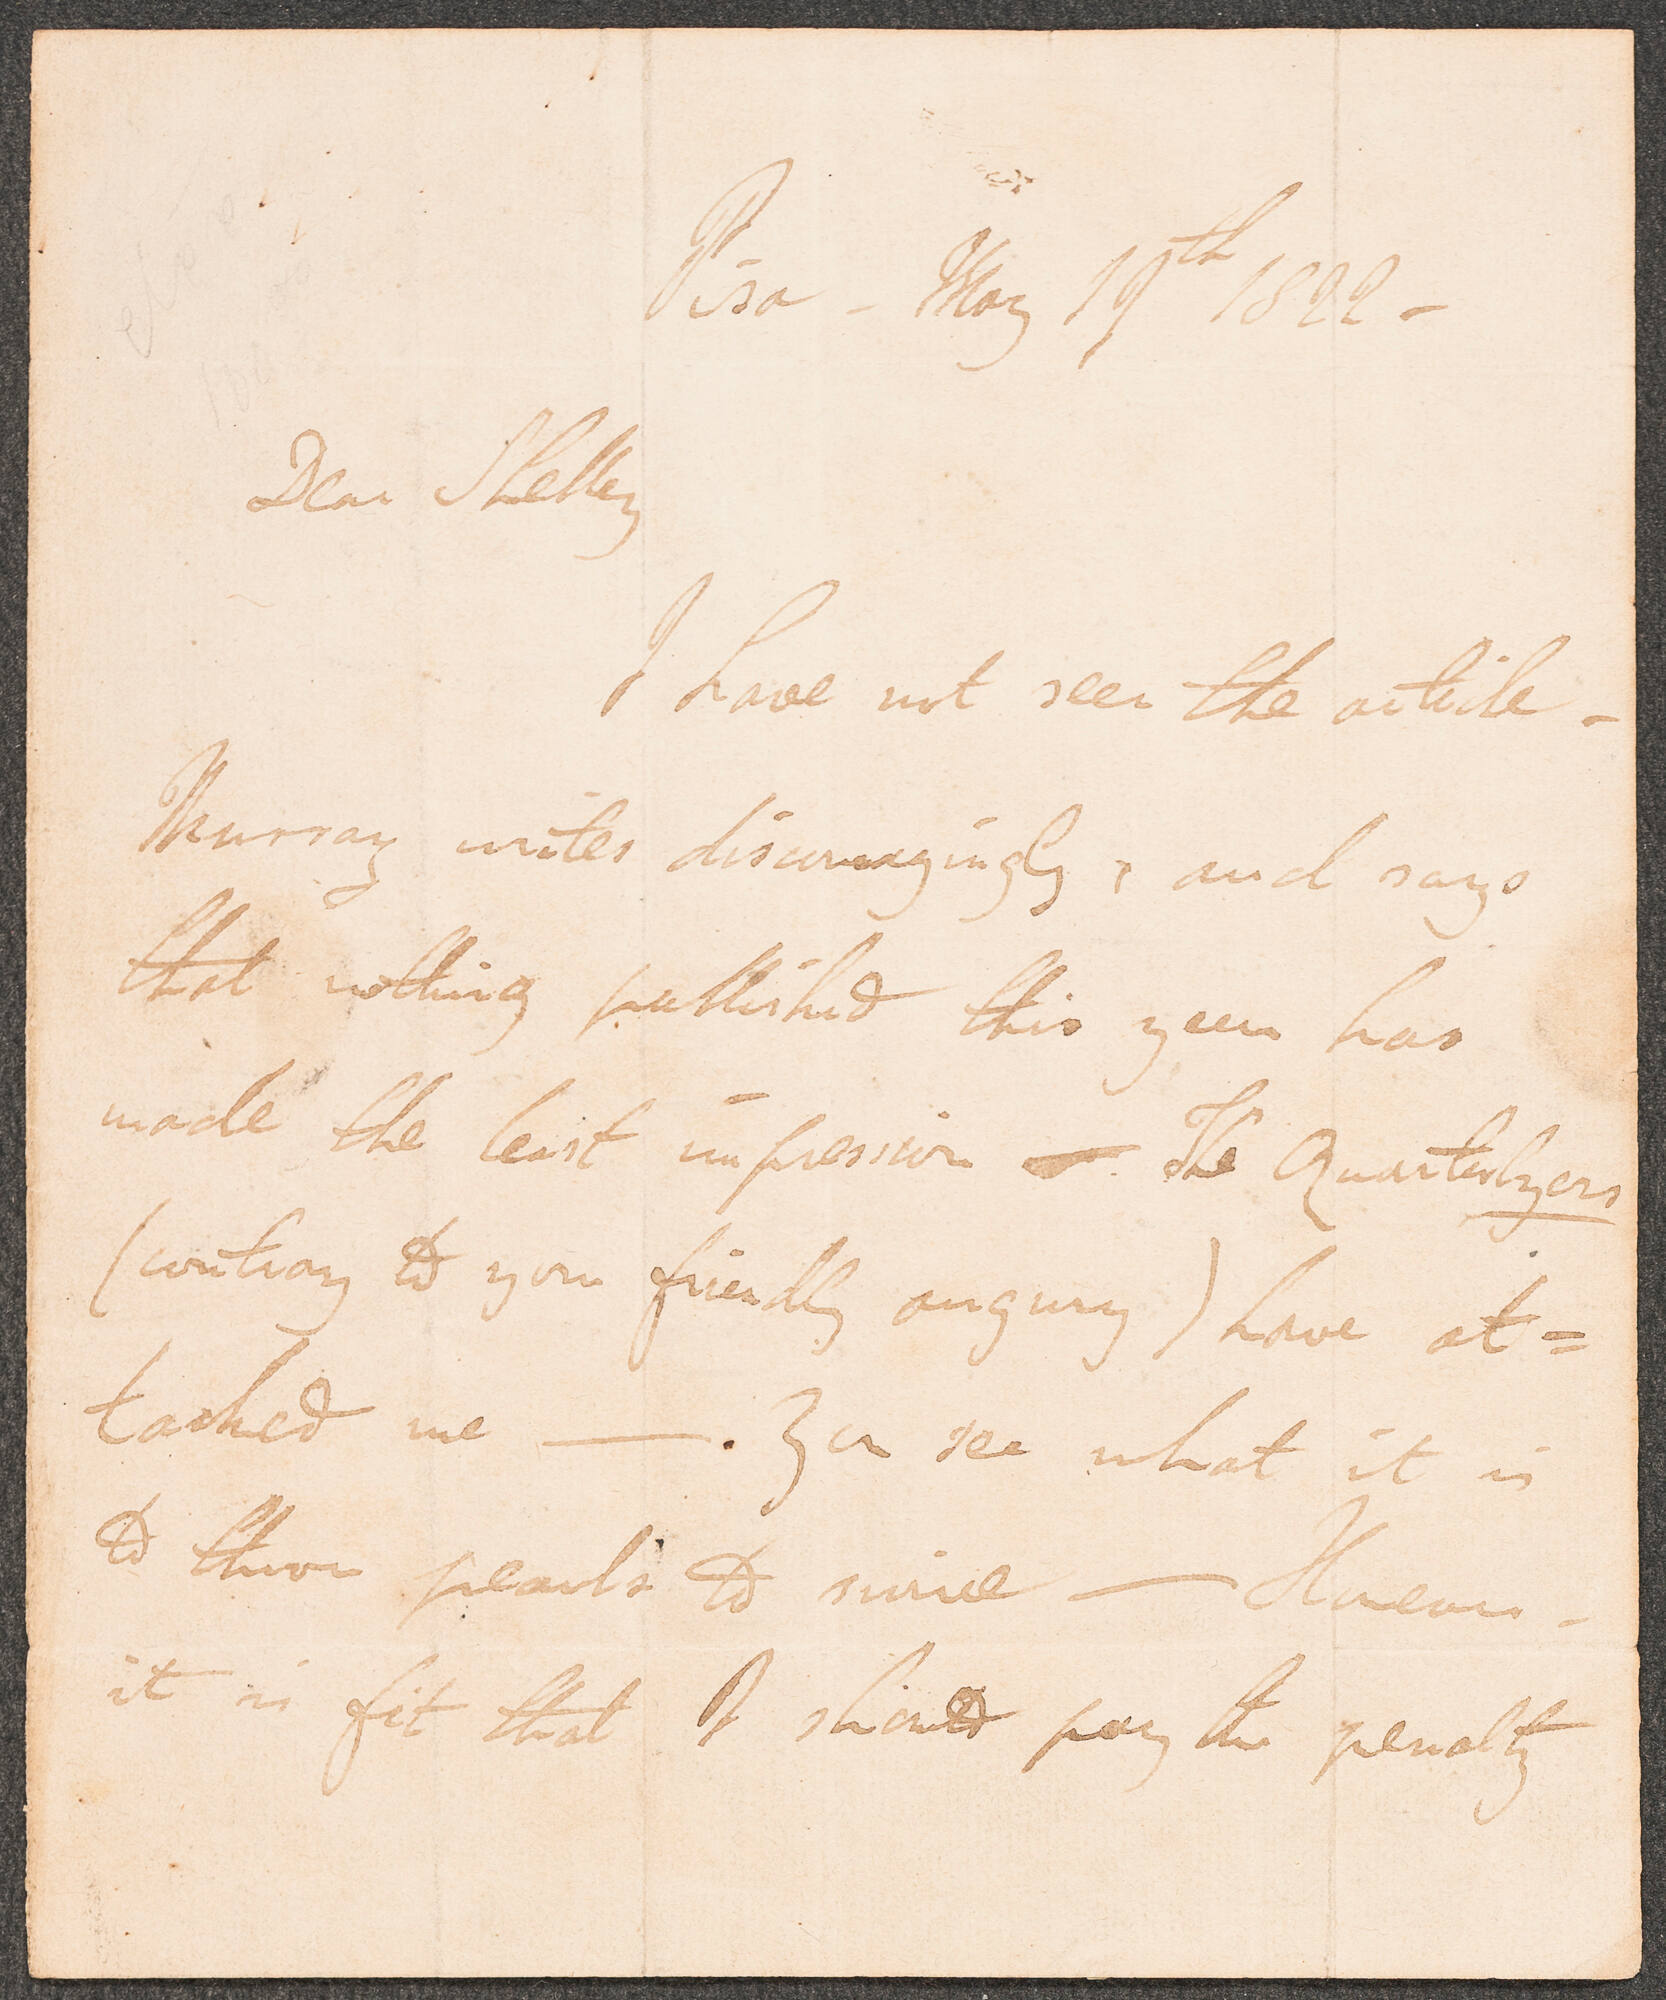 Pisa - May 19th 1822 -
Dear Shelley
I have not seen the article -
Murray writes discouragingly, and says
that nothing published this year has
made the least impression - The Quarterlyers
(contrary to your friendly augury) have at=
tacked me —. You see what it is
to throw pearls to swine — However -
it is fit that I should pay the penalty